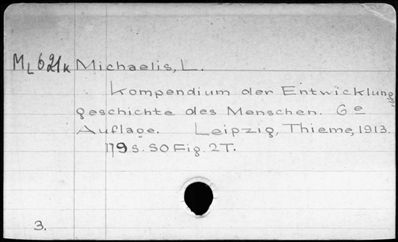 ML 621k Michaelis, L.
Kompendium der Entwicklungs
geschichte des Menschen. 6e
Auflage. Leipzig, Thieme, 1913.
179 S. 50 Fig. 2T.
3.